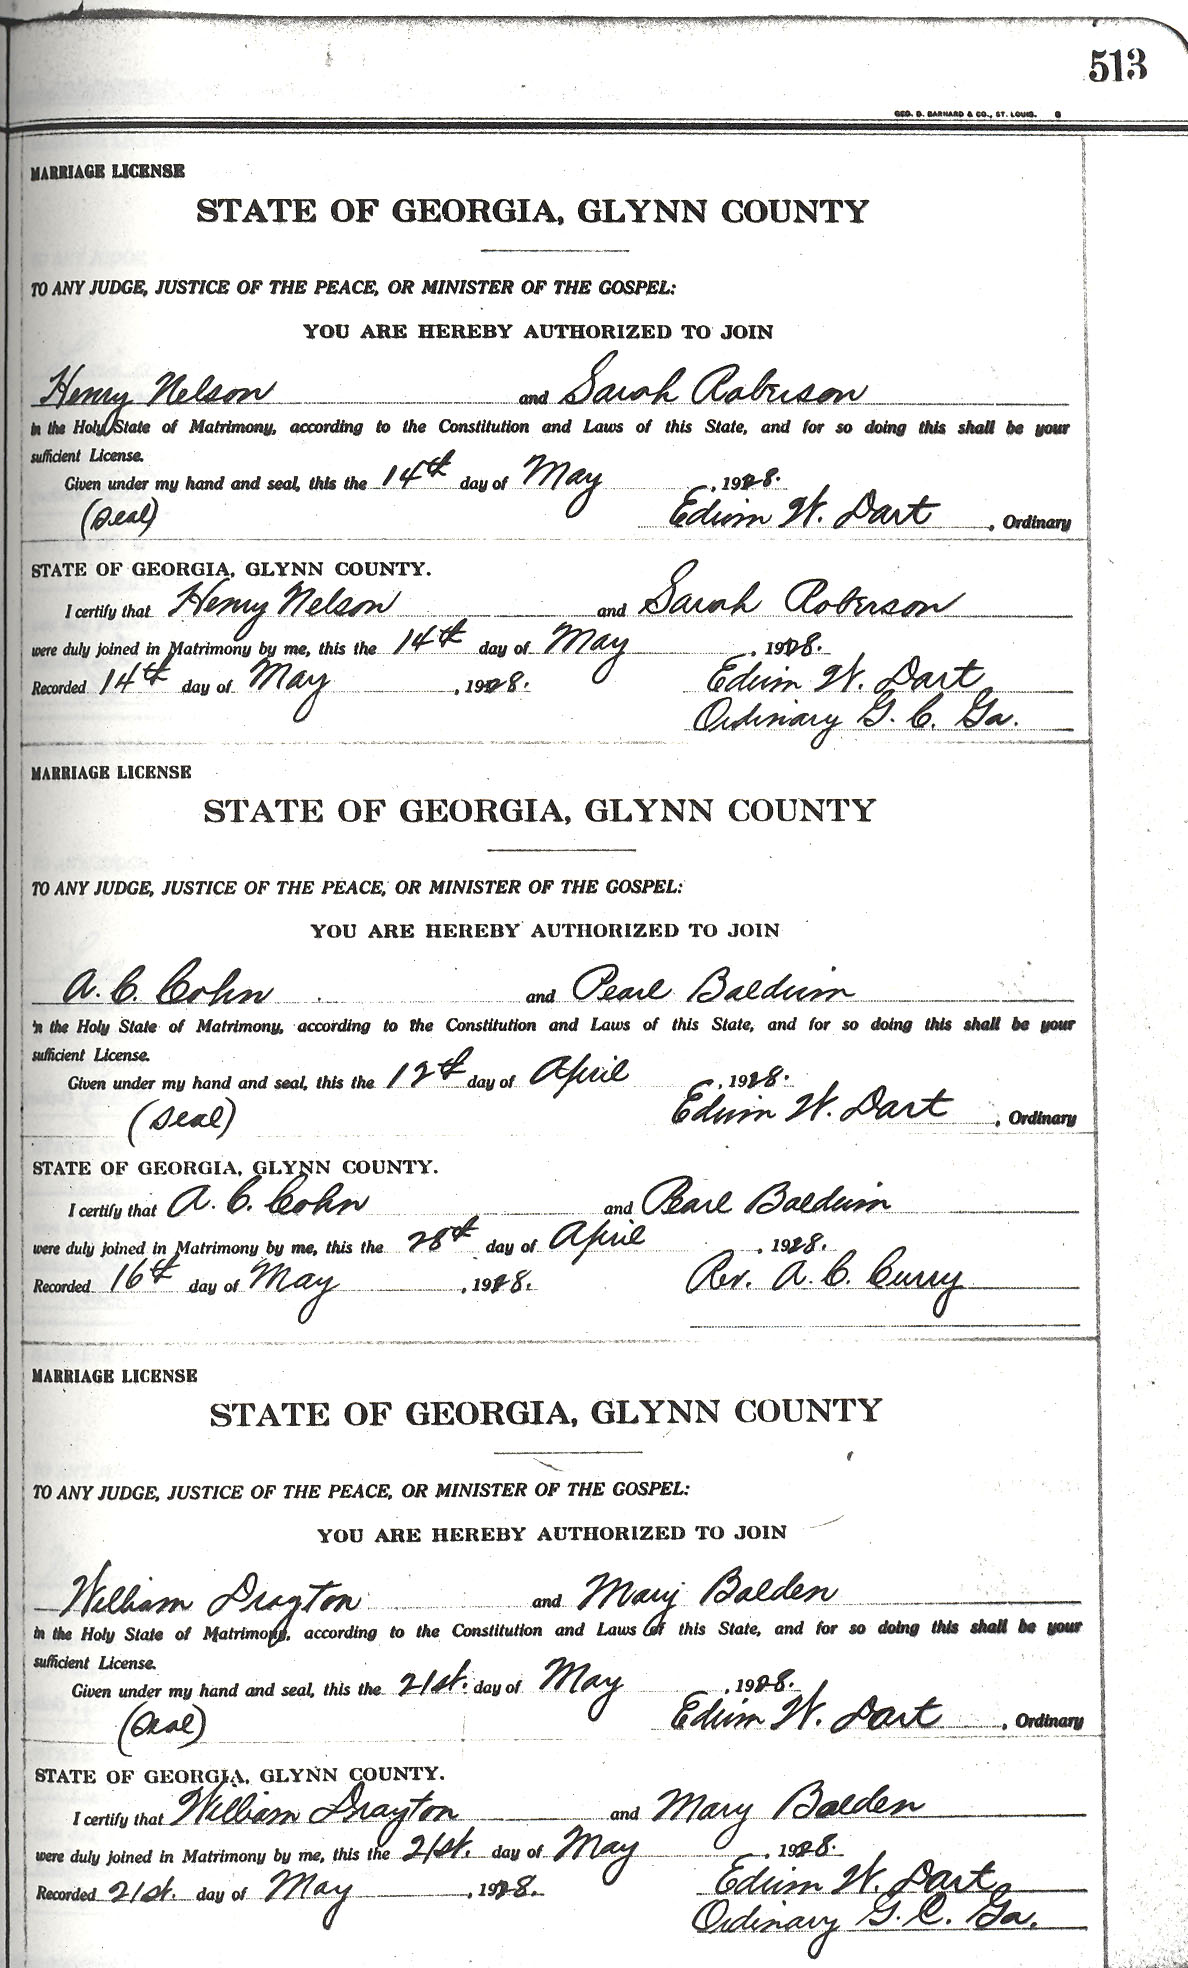 513
GEO. D. BARNARD & CO., ST. LOUIS. G
MARRIAGE LICENSE
STATE OF GEORGIA, GLYNN COUNTY
TO ANY JUDGE, JUSTICE OF THE PEACE, OR MINISTER OF THE GOSPEL:
YOU ARE HEREBY AUTHORIZED TO JOIN
Henry Nelson and Sarah Roberson
in the Holy State of Matrimony, according to the Constitution and Laws of this State, and for so doing this shall be your
sufficient License.
Given under my hand and seal, this the 14th day of May, 1928.
(Seal) Edwin W. Dart, Ordinary
STATE OF GEORGIA, GLYNN COUNTY.
I certify that Henry Nelson and Sarah Roberson
were duly joined in Matrimony by me, this the 14th day of May, 1928.
Recorded 14th day of May, 1928. Edwin W. Dart
Ordinary G. C. Ga.
MARRIAGE LICENSE
STATE OF GEORGIA, GLYNN COUNTY
TO ANY JUDGE, JUSTICE OF THE PEACE, OR MINISTER OF THE GOSPEL:
YOU ARE HEREBY AUTHORIZED TO JOIN
A. C. Cohn and Pearl Baldwin
in the Holy State of Matrimony, according to the Constitution and Laws of this State, and for so doing this shall be your
sufficient License.
Given under my hand and seal, this the 12th day of April, 1928.
(Seal) Edwin W. Dart, Ordinary
STATE OF GEORGIA, GLYNN COUNTY.
I certify that A. C. Cohn and Pearl Baldwin
were duly joined in Matrimony by me, this the 28th day of April, 1928.
Recorded 16th day of May, 1928. Rev. A. C. Curry
MARRIAGE LICENSE
STATE OF GEORGIA, GLYNN COUNTY
TO ANY JUDGE, JUSTICE OF THE PEACE, OR MINISTER OF THE GOSPEL:
YOU ARE HEREBY AUTHORIZED TO JOIN
William Drayton and Mary Balden
in the Holy State of Matrimony, according to the Constitution and Laws of this State, and for so doing this shall be your
sufficient License.
Given under my hand and seal, this the 21st. day of May, 1928.
(Seal) Edwin W. Dart, Ordinary
STATE OF GEORGIA, GLYNN COUNTY.
I certify that William Drayton and Mary Balden
were duly joined in Matrimony by me, this the 21st. day of May, 1928.
Recorded 21st. day of May, 1928. Edwin W. Dart
Ordinary G. C. Ga.